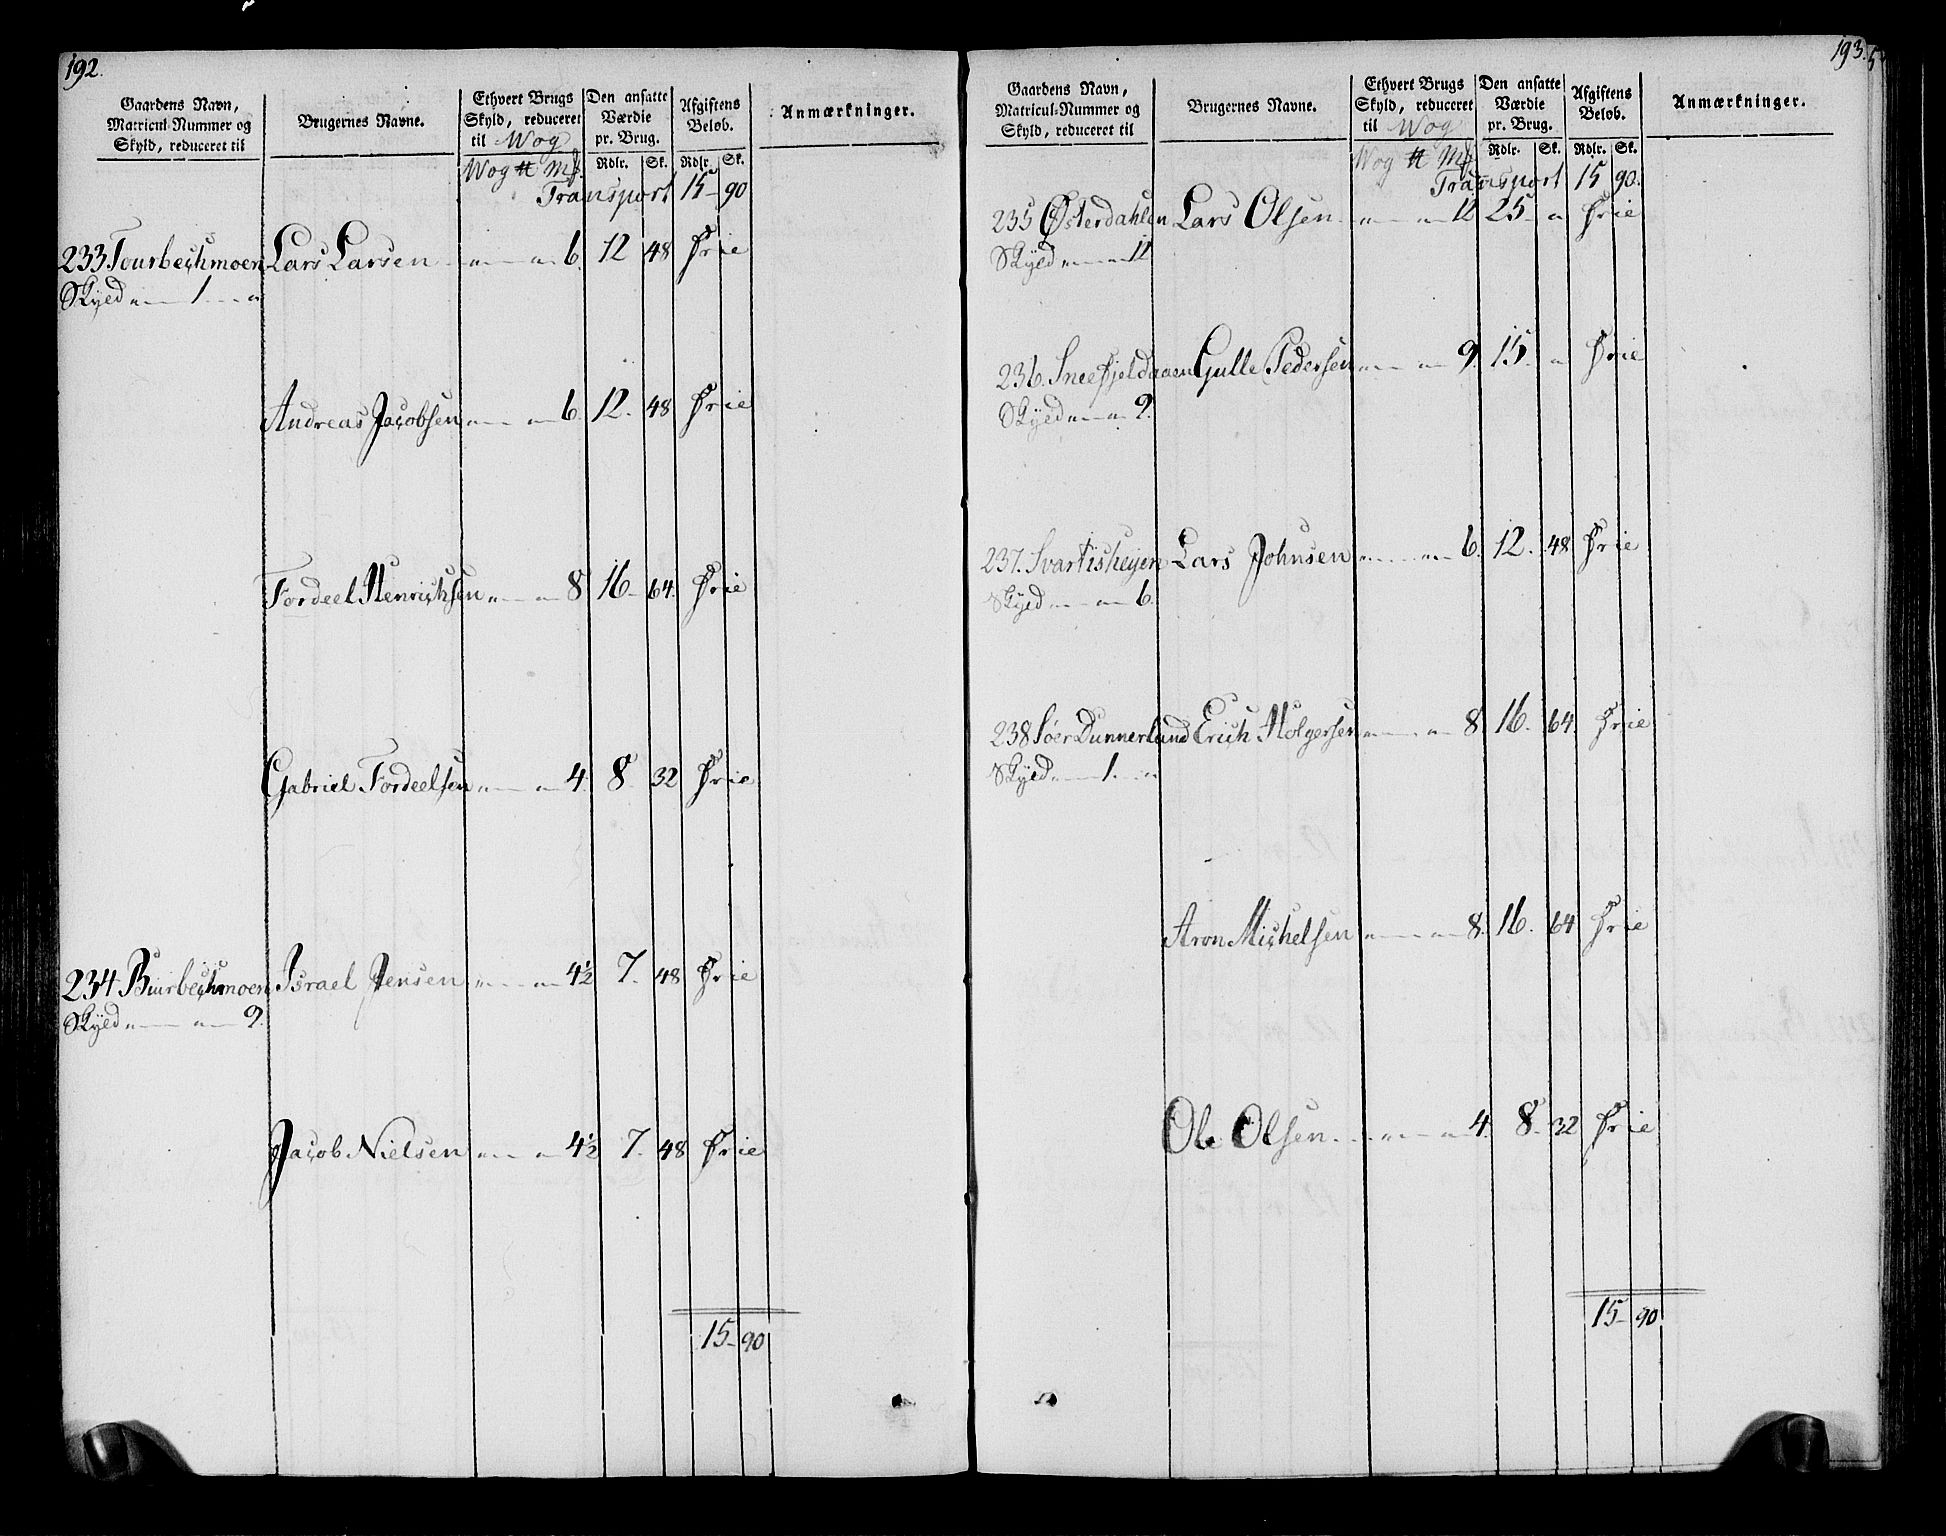 192.
Gaardens Navn,
Matricul-Nummer og
Skyld, reduceret til
Brugernes Navne.
Ethvert Brugs
Skyld, reduceret
til Wog
Den ansatte
Værdie
pr. Brug.
Afgiftens
Beløb.
Anmærkninger.
Wog ℔ Mk. Rdlr. Sk. Rdlr. Sk.
Transport 15 90
233 Lars Larsen 6. 12 48 Frie
Skyld 1
Andreas Jacobsen 6. 12. 48 Frie
Fordeel Henrichsen 8 16 64. Frie
Gabriel Fordeelsen 4. 8 32 Frie
234 Israel Jensen 4½ 7. 48 Frie
Skyld 9.
Jacob Nielsen 4½ 7. 48 Frie
15 90
193.
Gaardens Navn,
Matricul-Nummer og
Skyld, reduceret til
Brugernes Navne.
Ethvert Brugs
Skyld, reduceret
til Wog
Den ansatte
Værdie
pr. Brug.
Afgiftens
Beløb.
Anmærkninger.
Wog ℔ Mk. Rdlr. Sk. Rdlr. Sk.
Transport 15 90.
235 Østerdahlen Lars Olsen 12 25 Frie
Skyld 12
236. Sneefjeldaaen Gulle Pedersen 9. 15. Frie
Skyld 9.
237. Svartisheyen Lars Johnsen 6. 12. 48 Frie
Skyld 6.
238 Søer Dunnerland Erich Holgersen 8. 16. 64. Frie
Skyld 1.
Aron Michelsen 8. 16. 64 Frie
Ole Olsen 4. 8. 32 Frie
15 90